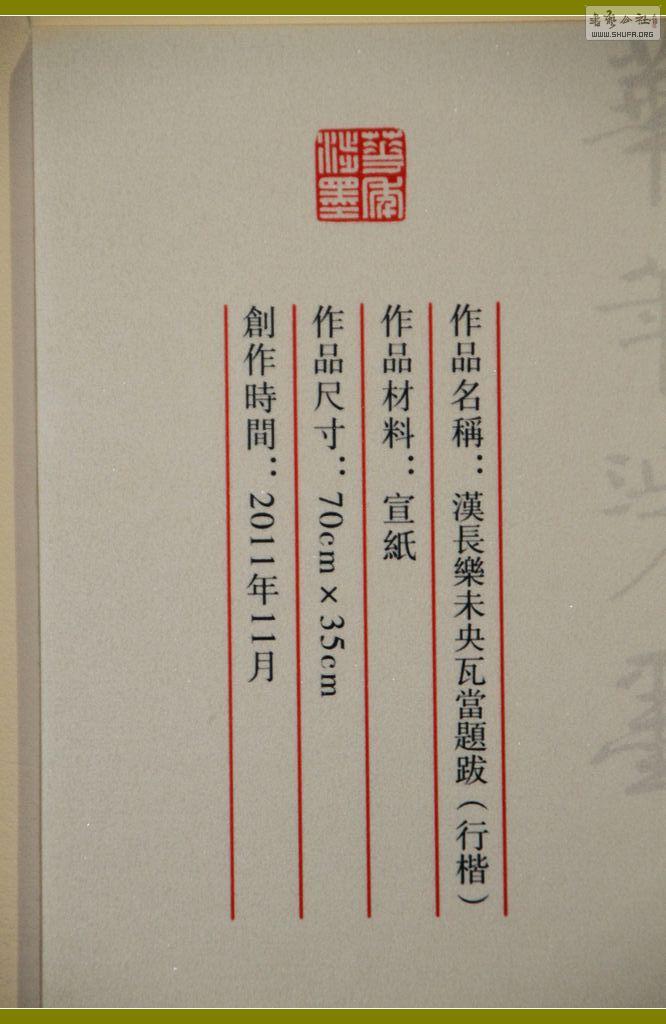 作品名稱：漢長樂未央瓦當題跋（行楷）
作品材料：宣紙
作品尺寸：70cm×35cm
創作時間：2011年11月
書藝公社
WWW.SHUFA.ORG